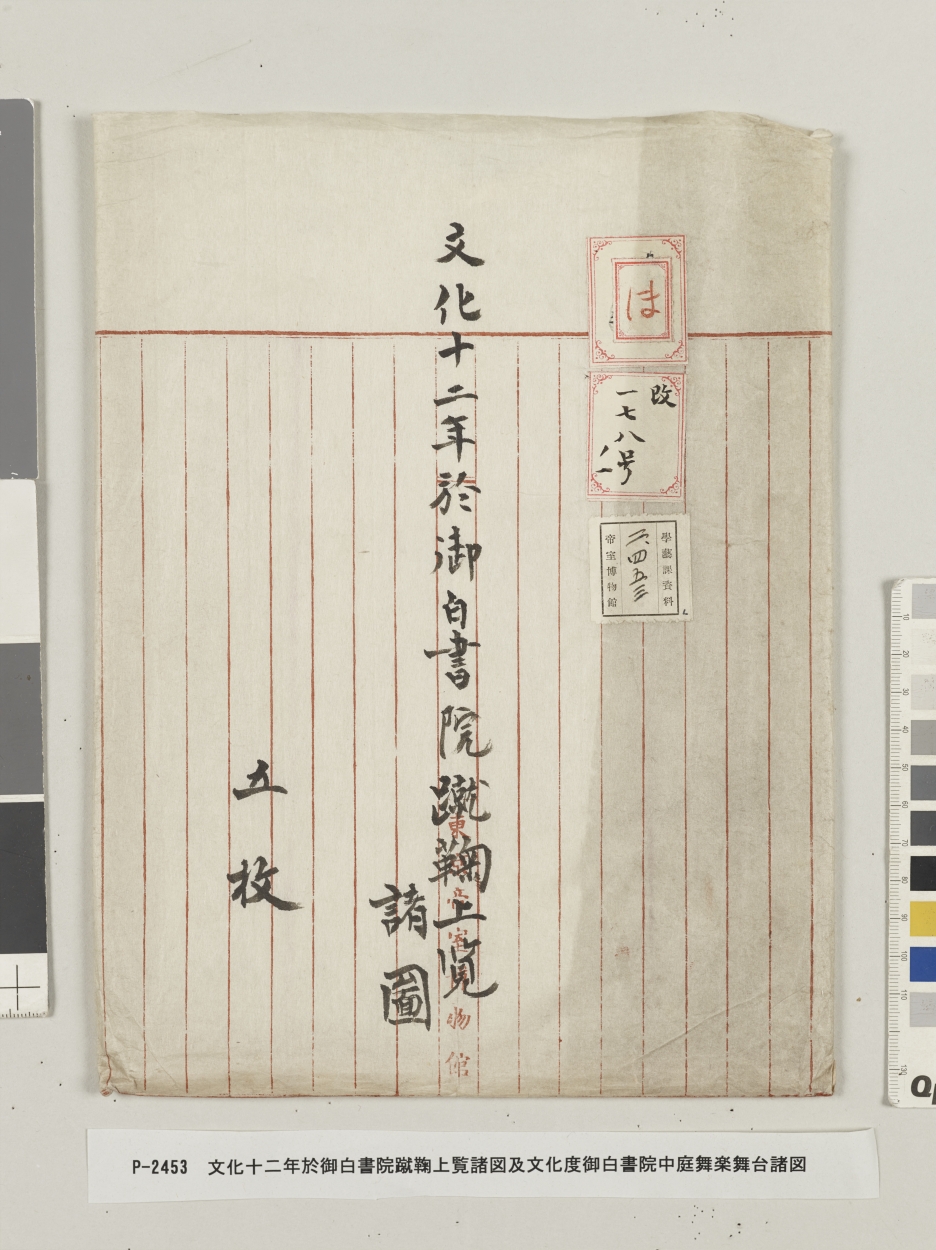 ほ
改
一七八号
ノ一
學藝課資料
二、四五三
帝室博物館
文化十二年於御白書院蹴鞠上覧
諸圖
五枚
東京帝室博物館
P-2453 文化十二年於御白書院蹴鞠上覧諸図及文化度御白書院中庭舞楽舞台諸図
10
20
30
40
50
60
70
80
90
100
110
130